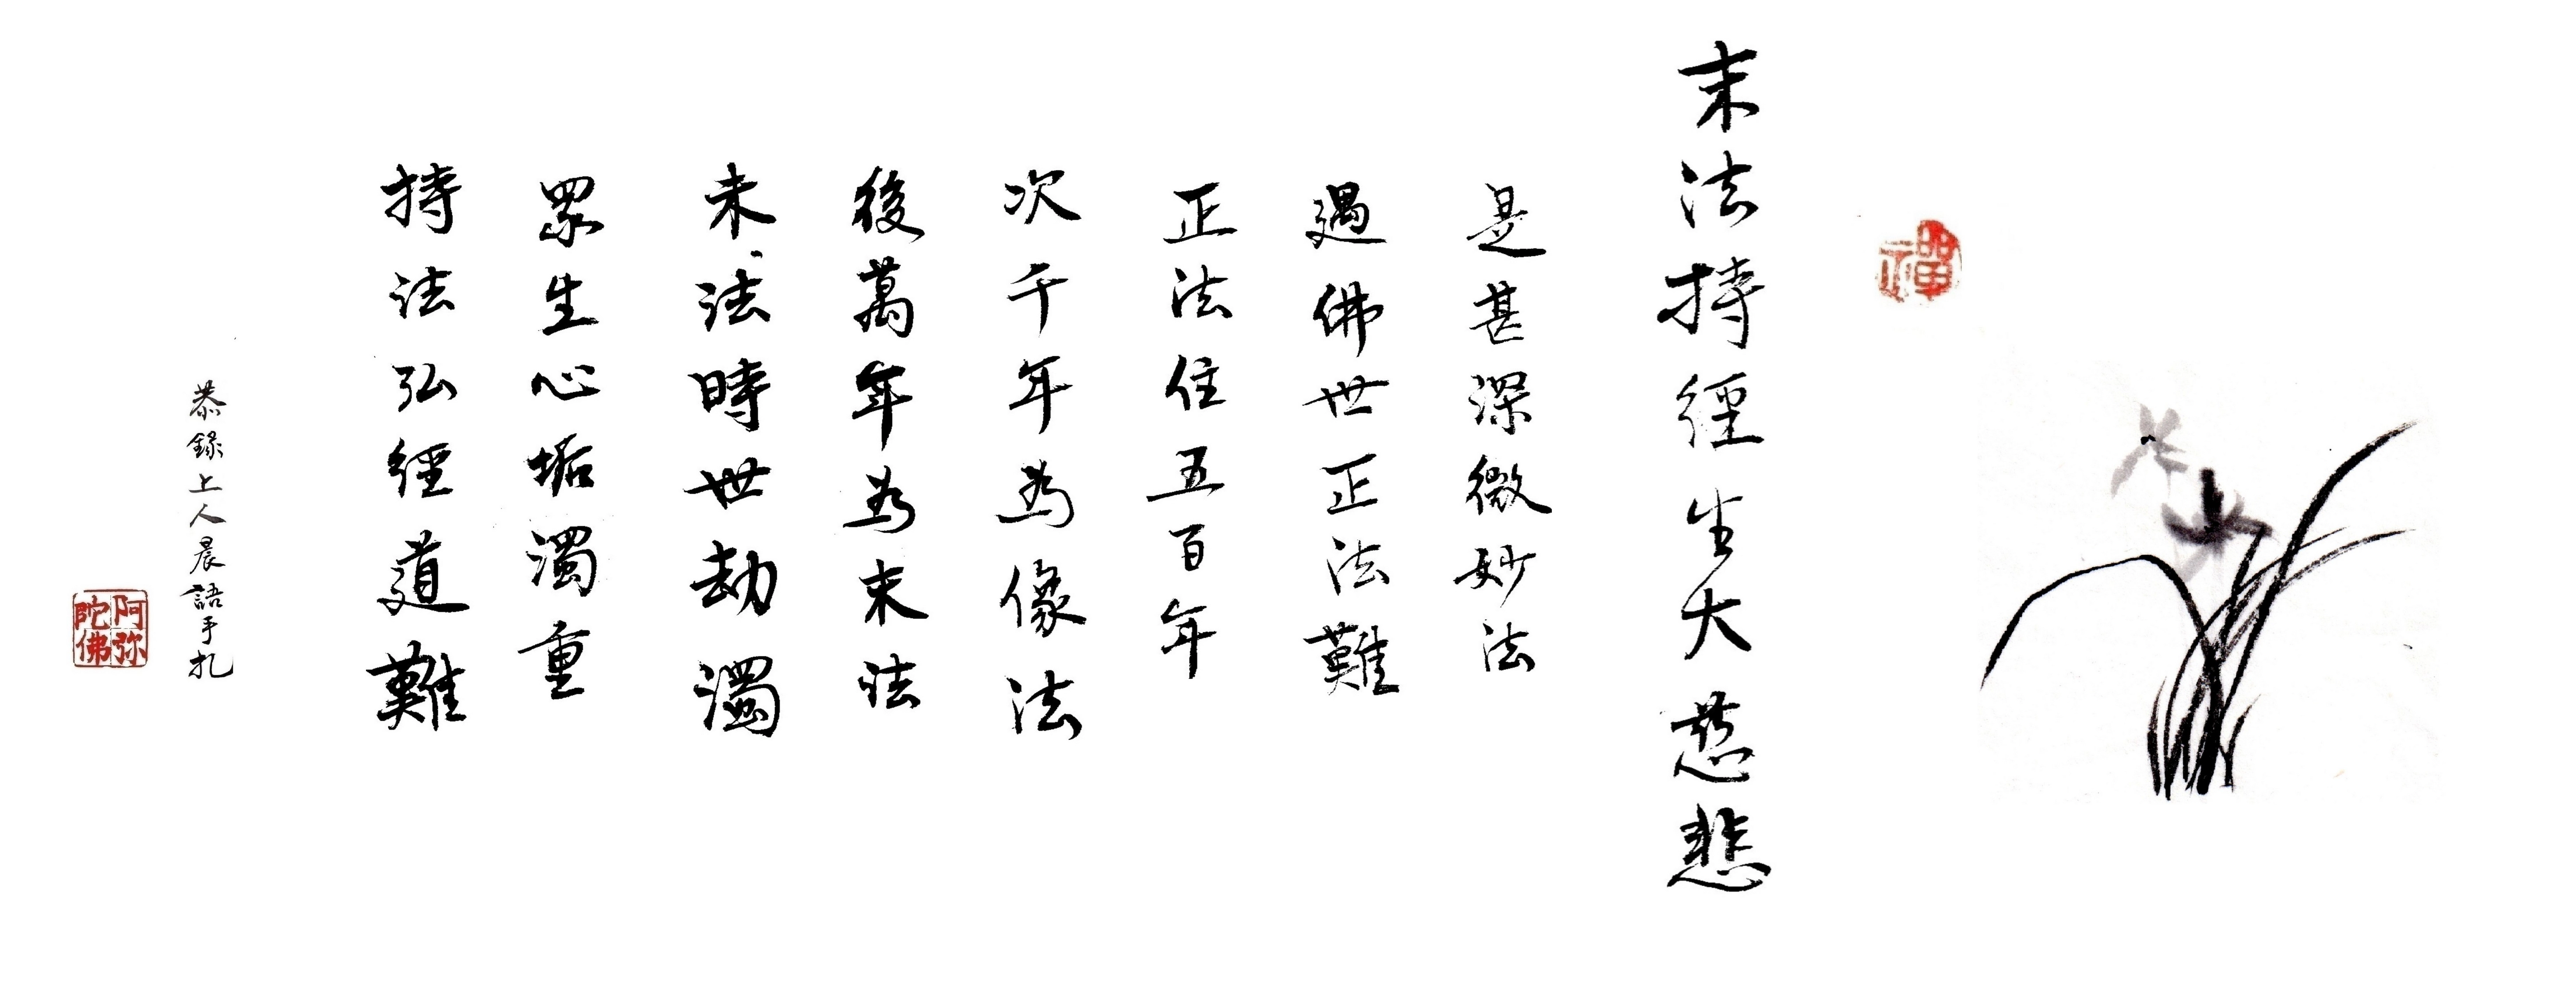 禪
末法持經生大慈悲
是甚深微妙法
遇佛世正法難
正法住五百年
次千年為像法
後萬年為末法
末法時世劫濁
眾生心垢濁重
持法弘經道難
恭錄上人晨語手札
阿弥陀佛